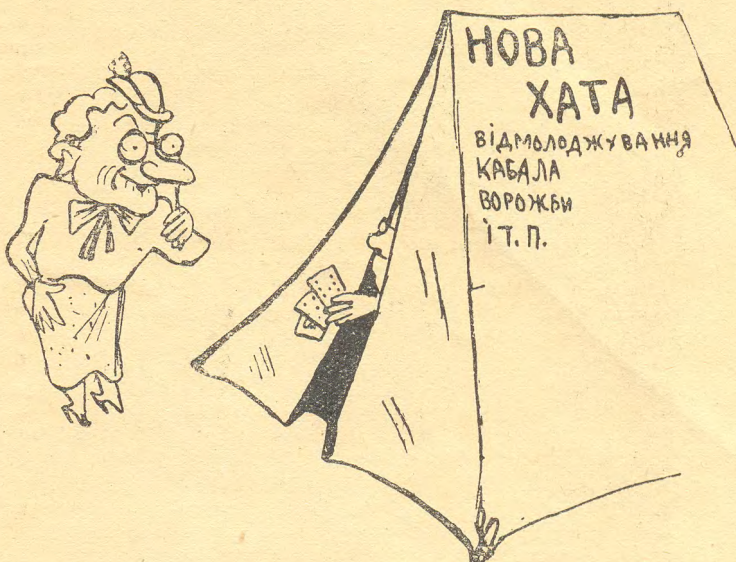 НОВА
ХАТА
ВІДМОЛОДЖУВАННЯ
КАБАЛА
ВОРОЖБИ
І Т. П.